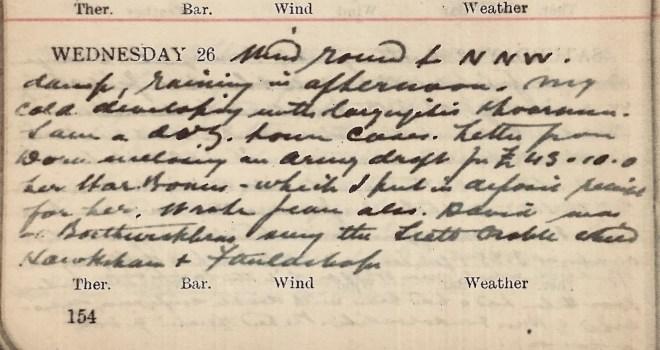 Ther. Bar. Wind Weather
WEDNESDAY 26 Wind round to N N W.
damp, raining in afternoon. My
cold developing into laryngitis & hoarseness.
Saw a doz. town cases. Letter from
enclosing an army draft for £43-10-0
her War Bonus - which I put in deposit receipt
for her. Wrote Jean also. David was
seeing the child
+
Ther. Bar. Wind Weather
154